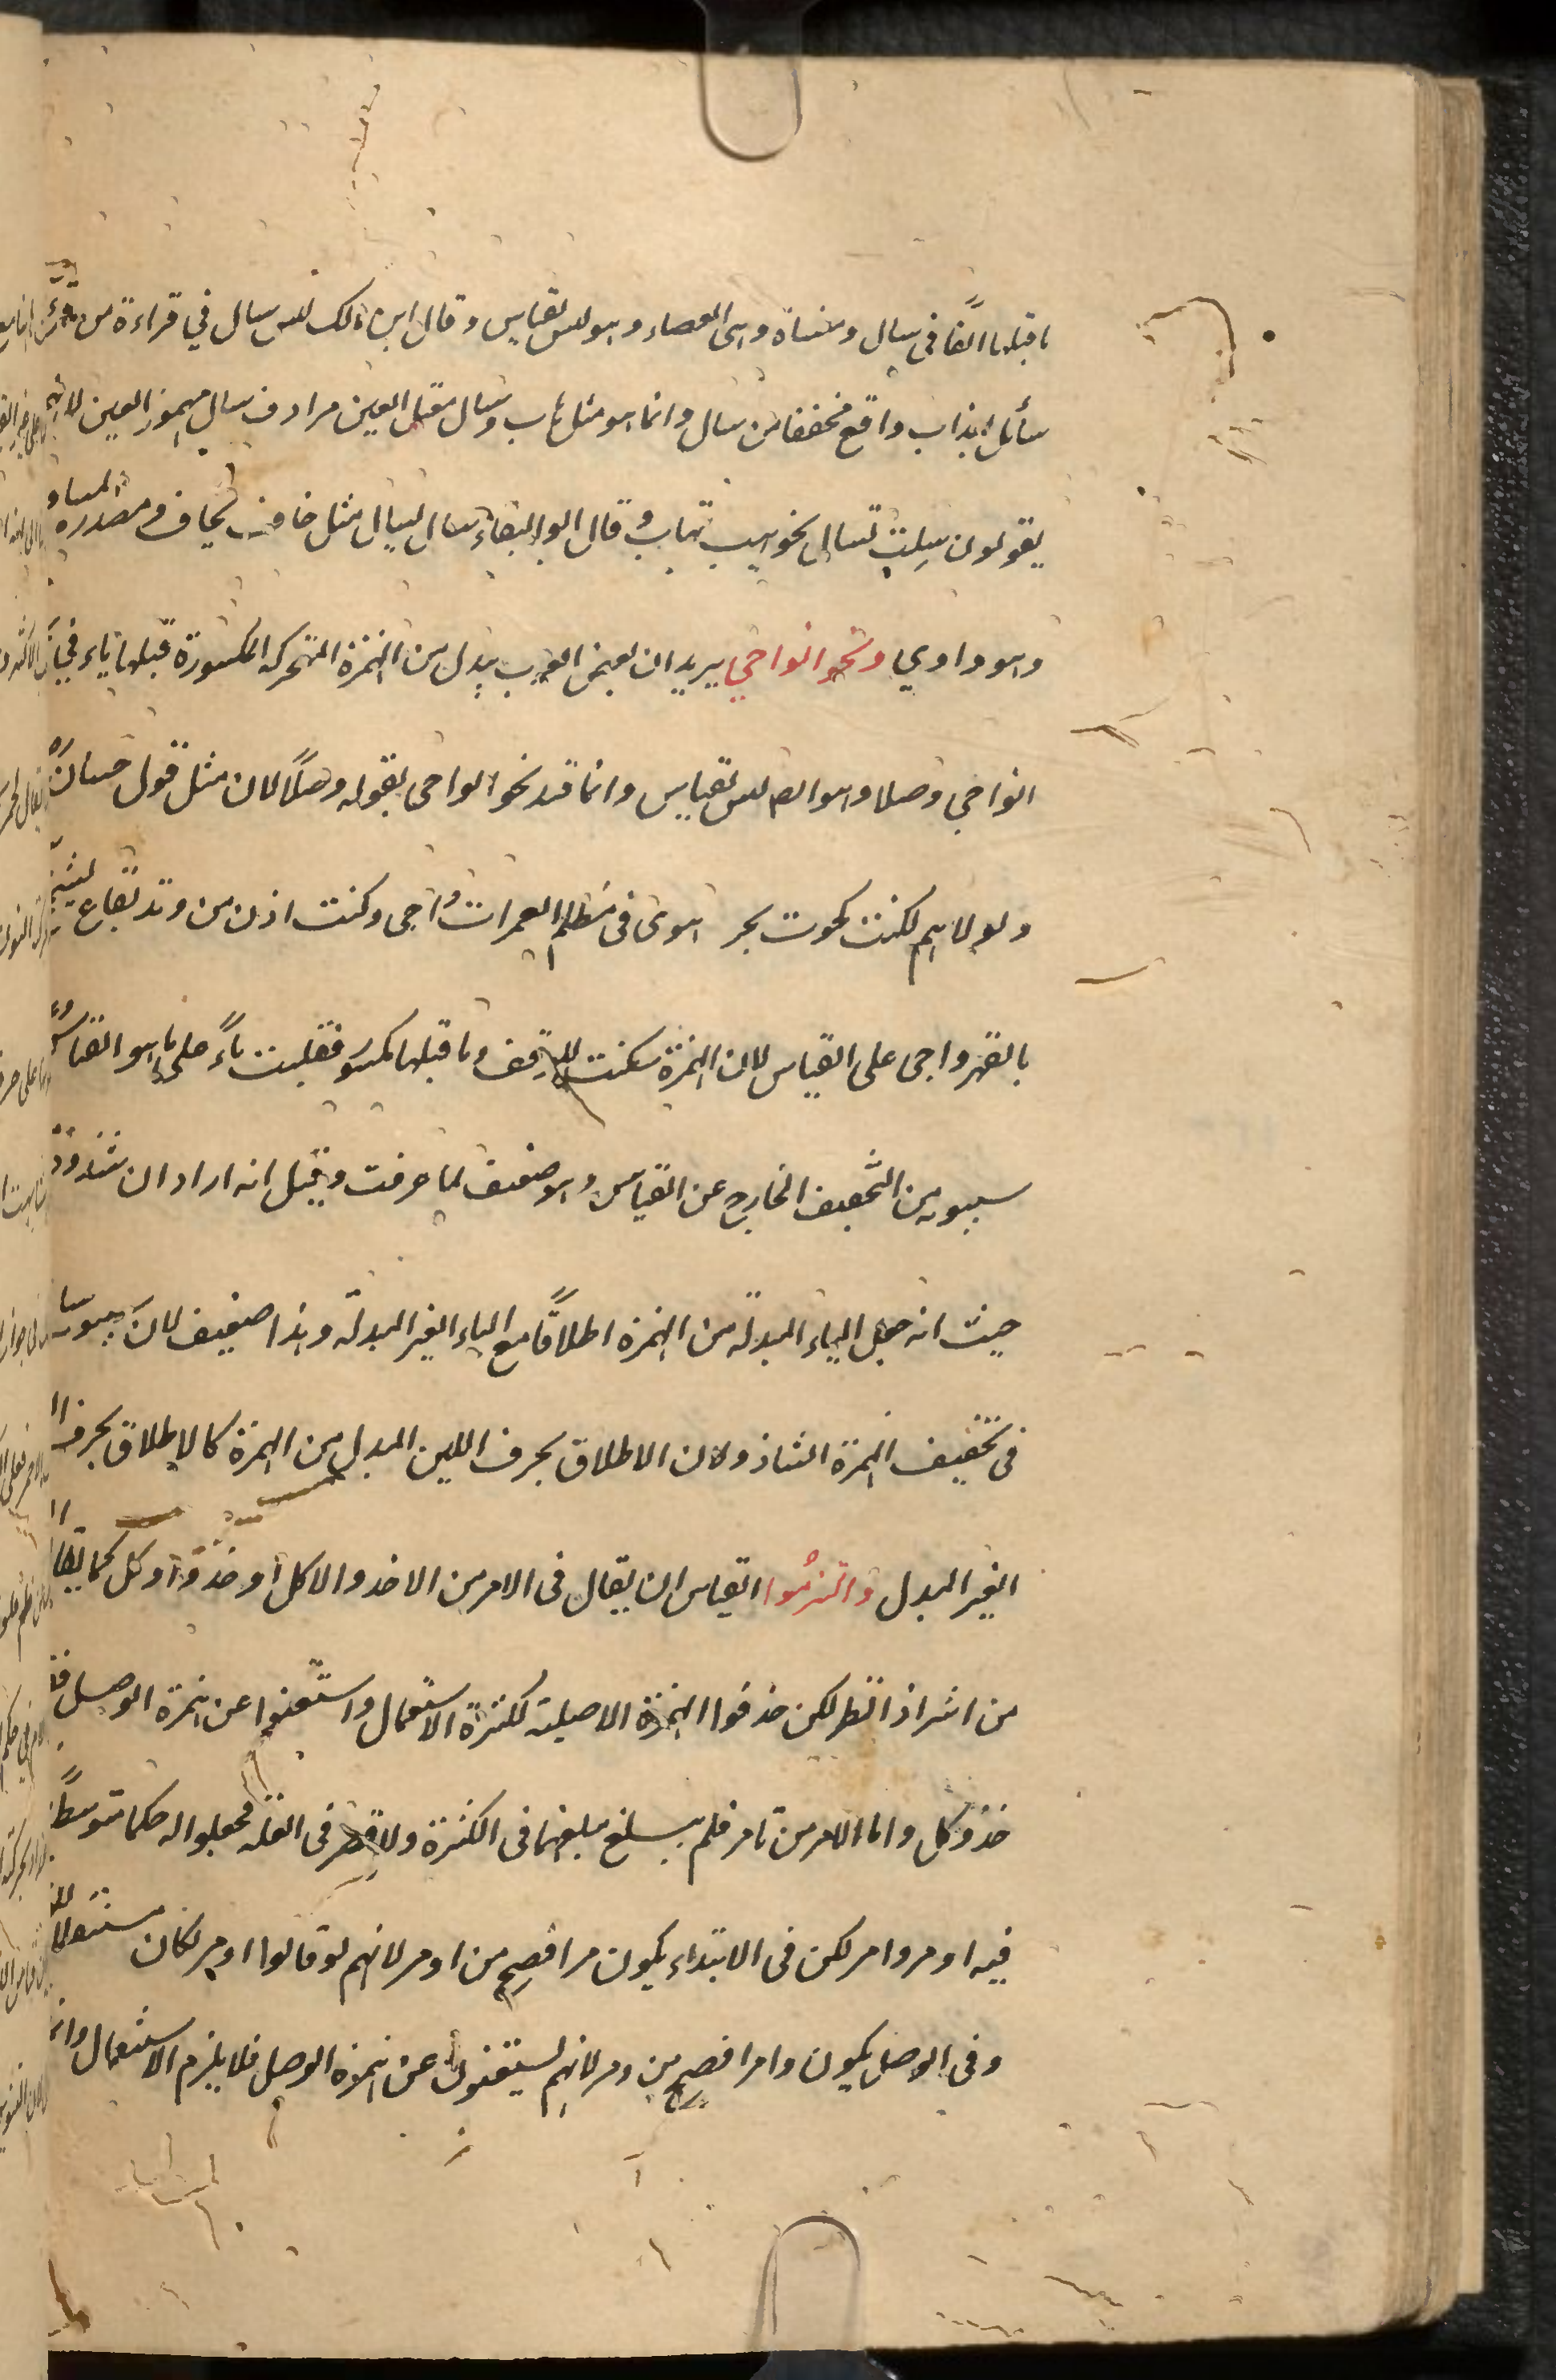 ما قبلها الفا فى سال ومنساة وهى العصاء وهو ليس بقياس وقال ابن مالك ليس سال في قراءة من قرء
سأل بعذاب واقع مخففا من سال وانما هو مثل هاب وسال معتل العين مرادف سال مهموز العين لانهم
يقولون سِلت تسال نحو هبت تهاب وقال ابو البقاء سال يسال مثل خاف يخاف ومصدره المساو
وهو واوي ونحو الواجي يريد ان بعض العرب يبدل من الهمزة المتحركة المكسورة قبلها ياء في
الواجي وصلا وهو ايضا ليس بقياس وانما قيد نحو الواجى بقوله وصلاً لان مثل قول حسان
ولولاهم لكنت كحوت بحر هوى فى مظلم الغمرات واجى وكنت اذل من وتد بقاع يشجج
بالفهر واجى على القياس لان الهمزة سكنت للوقف وما قبلها مكسور فقلبت ياءً على ما هو القياس
سيبويه من التخفيف الخارج عن القياس وهو ضعيف لما عرفت وقيل انه اراد ان شذوذه
حيث انه جعل الياء المبدلة من الهمزة اطلاقًا مع الياء الغير المبدلة وهذا ضعيف لان سيبويه
فى تخفيف الهمزة الشاذ ولان الاطلاق بحرف اللين المبدل من الهمزة كالاطلاق بحرف
الغير المبدل والتزموا القياس ان يقال فى الامر من الاخذ والاكل أوخذ وأوكل كما يقال
من اشر اذا انظر لكن حذفوا الهمزة الاصلية لكثرة الاستعمال واستغنوا عن همزة الوصل
خذ وكل واما الامر من تامر فلم يبلغ مبلغهما فى الكثرة ولا قصر فى القلة فجعلوا له حكما متوسطا
فيه اومر وامر لكن فى الابتداء يكون مر افصح من اومر لانهم لو قالوا اومر لكان مستثقلا
وفى الوصل يكون وامر افصح من ومر لانهم يستغنون عن همزة الوصل فلا يلزم الاستثقال